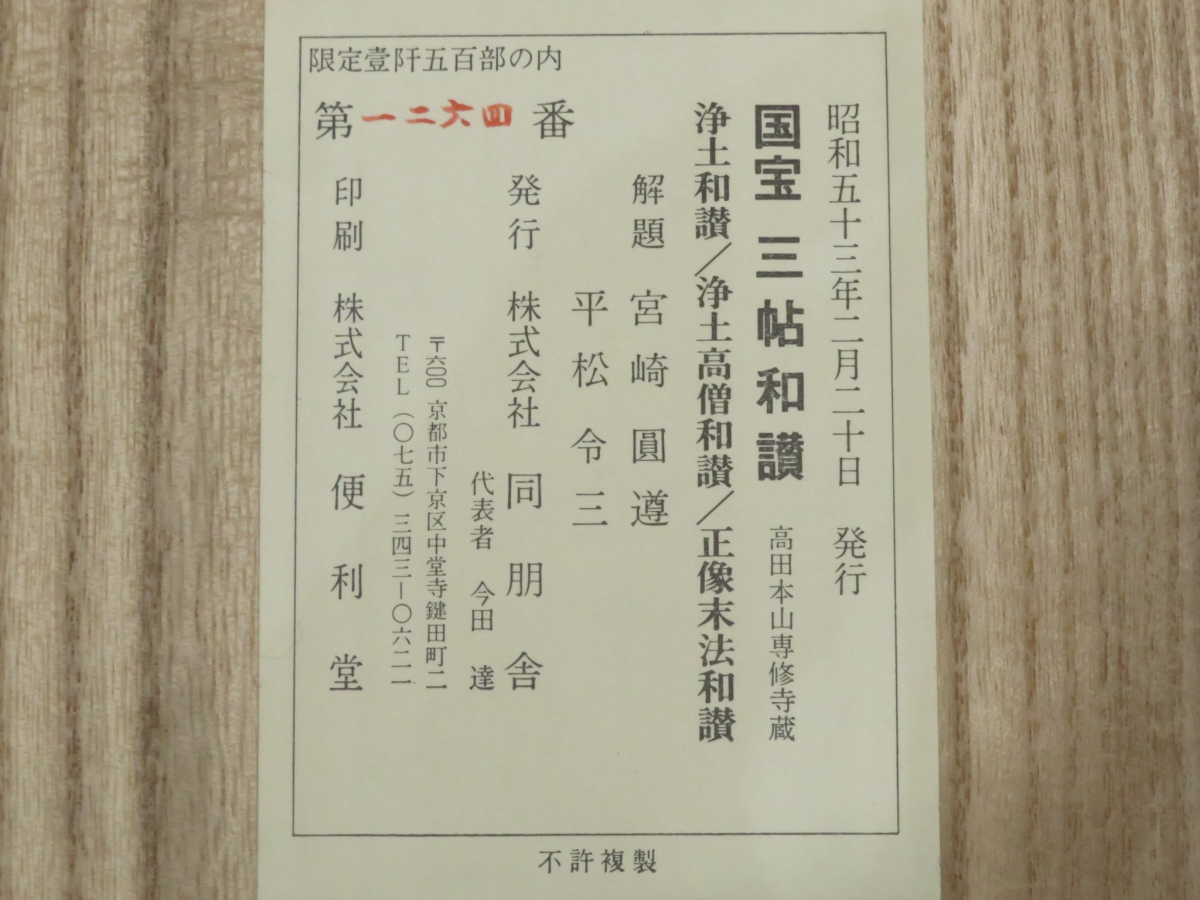 限定壹阡五百部の内
第一二六四番
昭和五十三年二月二十日 発行
国宝 三帖和讃 高田本山専修寺蔵
浄土和讃／浄土高僧和讃／正像末法和讃
解題 宮崎圓遵
平松令三
発行 株式会社 同朋舎
代表者 今田 達
〒六〇〇 京都市下京区中堂寺鍵田町二
TEL（〇七五）三四三ー〇六二一
印刷 株式会社 便利堂
不許複製